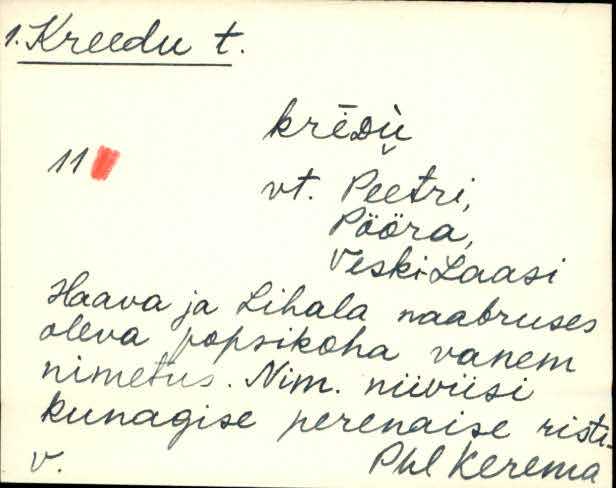 1. Kreedu t.
krēDù
11
vt. Peetri,
Pööra,
Veski-Laasi
Haava ja Lihala naabruses
oleva popsikoha vanem
nimetus. Nim. niiviisi
kunagise perenaise risti-
v. Phl Kerema